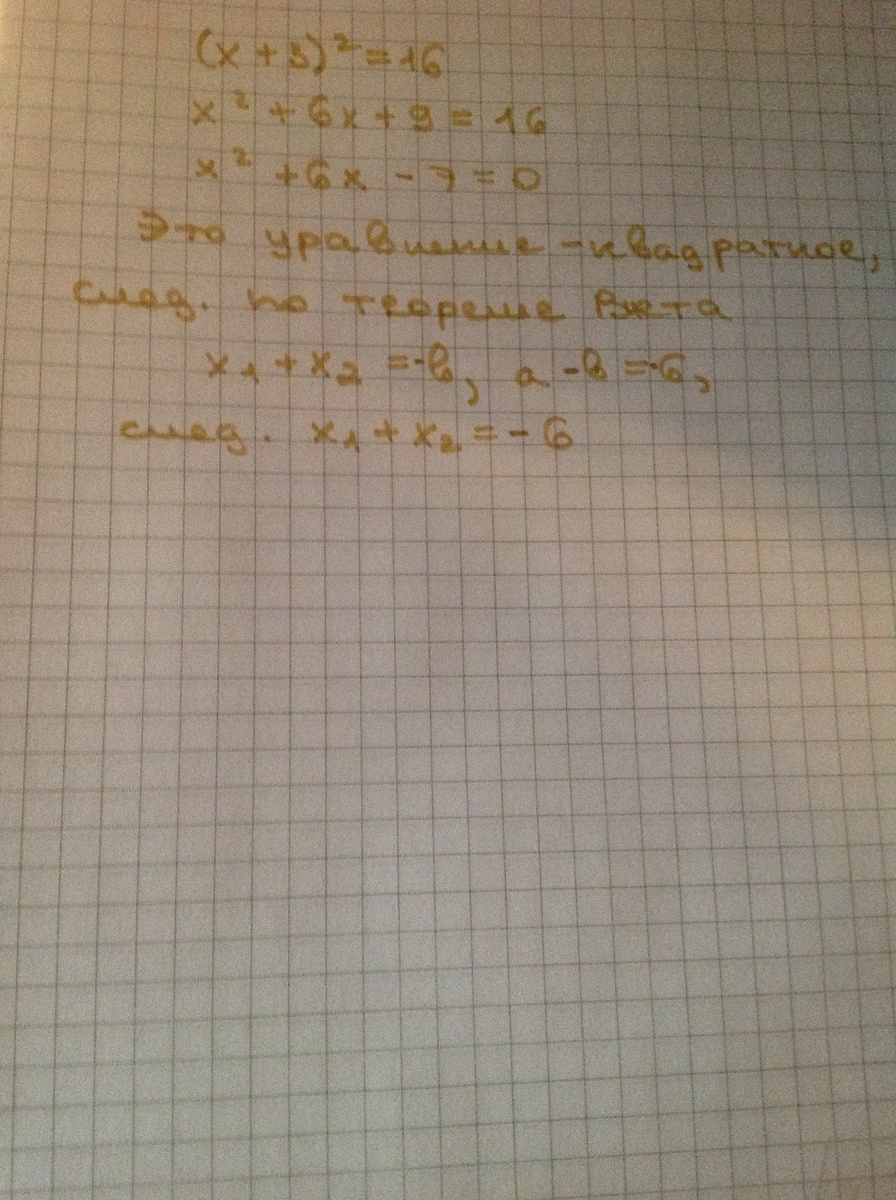 (x + 3)² = 16
x² + 6x + 9 = 16
x² + 6x - 7 = 0
Это уравнение - квадратное,
след. по теореме Виета
x₁ + x₂ = -b, а -b = -6,
след. x₁ + x₂ = - 6